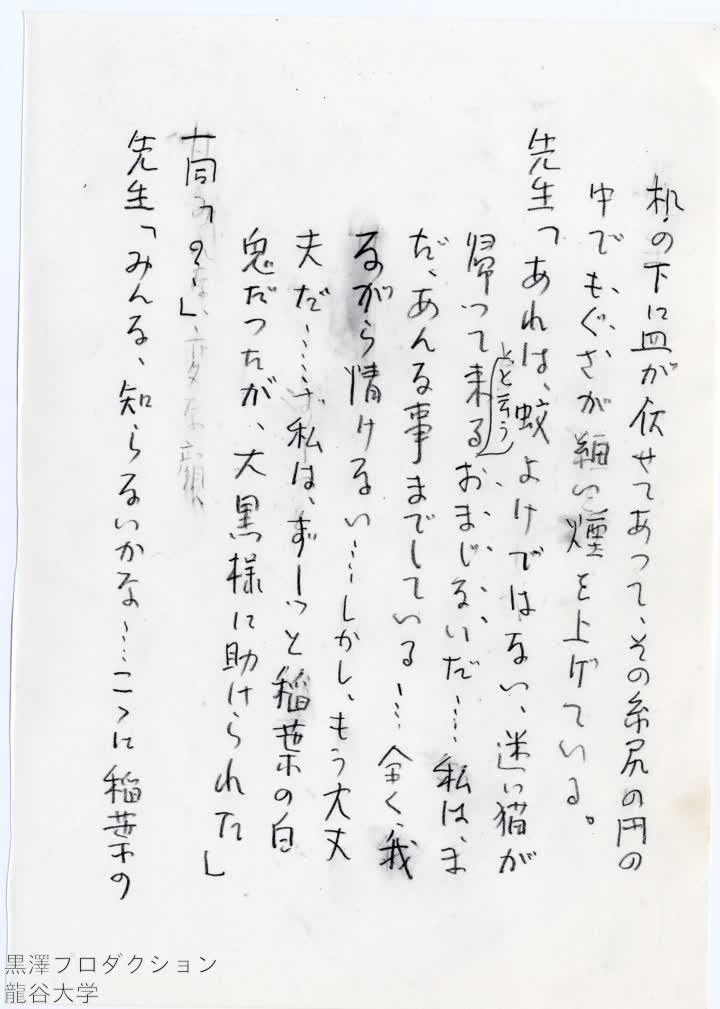 机の下に皿が伏せてあって、その糸尻の円の
中でもぐさが細い煙を上げている。
先生「あれは、蚊よけではない、迷い猫が
帰って来るおまじないだ……私は、ま
とと云う
だ、あんな事までしている……全く、我
ながら情けない……しかし、もう大丈
夫だ……私は、ずーっと稲葉の白
鬼だったが、大黒様に助けられた」
一同「？」
先生「みんな、知らないかな……こゝに稲葉の
黒澤プロダクション
龍谷大学